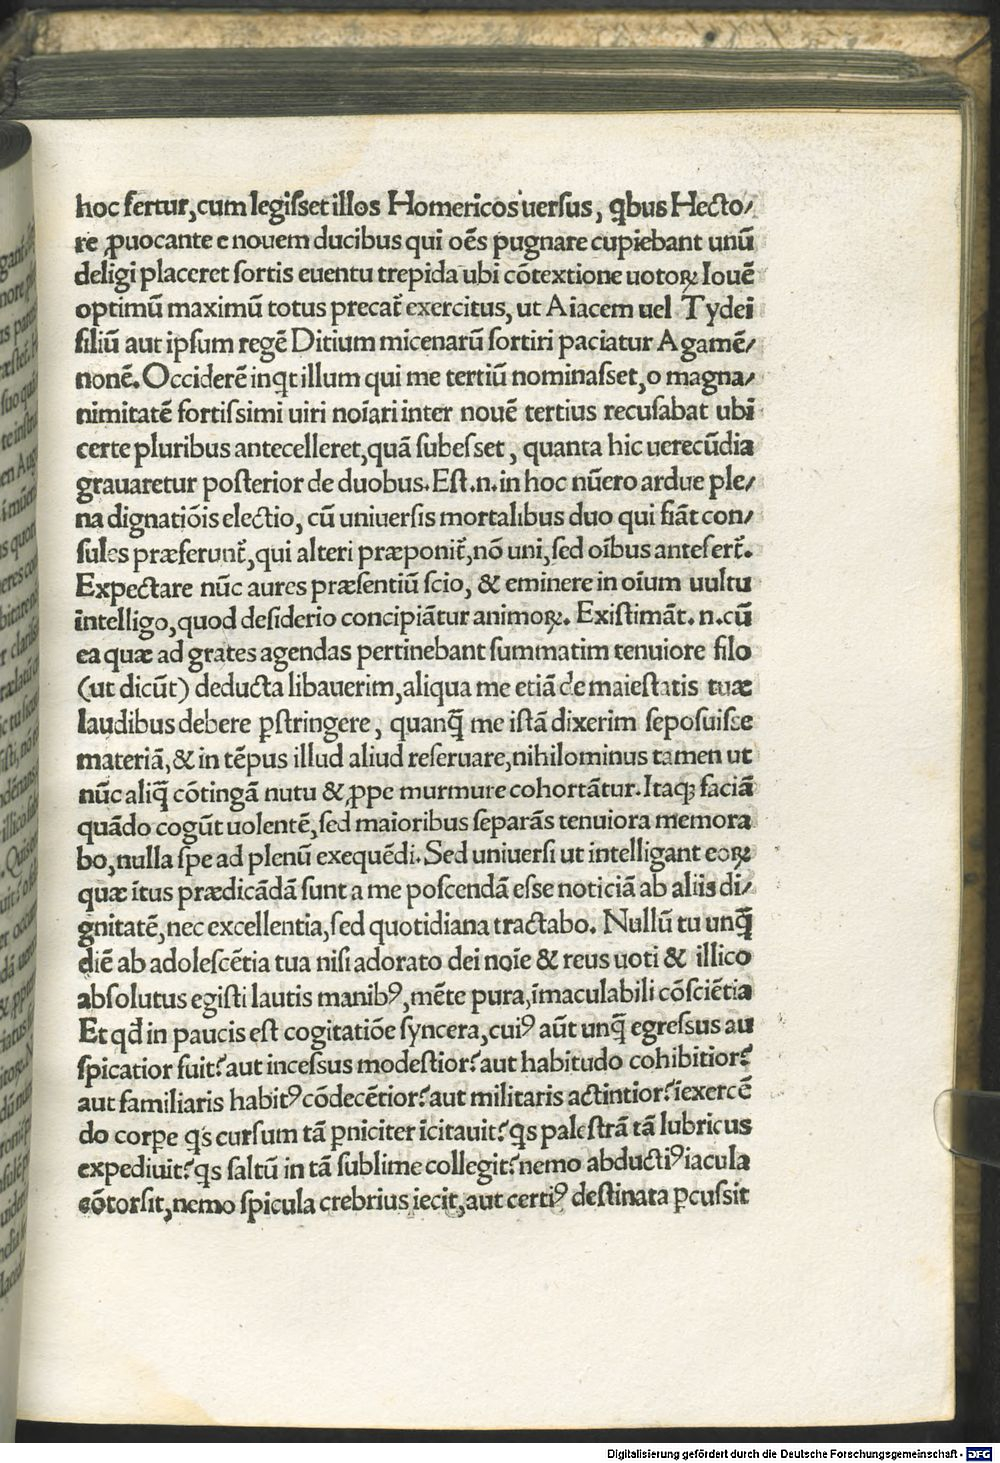 hoc fertur, cum legisset illos Homericos uersus, qbus Hecto/
re ꝓuocante e nouem ducibus qui oẽs pugnare cupiebant unũ
deligi placeret sortis euentu trepida ubi cõtextione uotoꝝ Iouẽ
optimũ maximũ totus precat̃ exercitus, ut Aiacem uel Tydei
filiũ aut ipsum regẽ Ditium micenarũ sortiri paciatur Agamẽ/
nonẽ. Occiderẽ inqt illum qui me tertiũ nominasset, o magna/
nimitatẽ fortissimi uiri noĩari inter nouẽ tertius recusabat ubi
certe pluribus antecelleret, quã subesset, quanta hic uerecũdia
grauaretur posterior de duobus. Est .n. in hoc nũero ardue ple/
na dignatiõis electio, cũ uniuersis mortalibus duo qui fiãt con/
sules præferunt̃, qui alteri præponit̃, nõ uni, sed oĩbus antefert̃.
Expectare nũc aures præsentiũ scio, & eminere in oĩum uultu
intelligo, quod desiderio concipiãtur animoꝝ. Existimãt .n. cũ
ea quæ ad grates agendas pertinebant summatim tenuiore filo
(ut dicũt) deducta libauerim, aliqua me etiã de maiestatis tuæ
laudibus debere ꝑstringere, quanq̃ me istã dixerim seposuisse
materiã, & in tẽpus illud aliud reseruare, nihilominus tamen ut
nũc aliq̃ cõtingã nutu & ꝓpe murmure cohortãtur. Itaqꝫ faciã
quãdo cogũt uolentẽ, sed maioribus separãs tenuiora memora
bo, nulla spe ad plenũ exequẽdi. Sed uniuersi ut intelligant eoꝝ
quæ ĩtus prædicãdã sunt a me poscendã esse noticiã ab aliis di/
gnitatẽ, nec excellentia, sed quotidiana tractabo. Nullũ tu unq̃
diẽ ab adolescẽtia tua nisi adorato dei noĩe & reus uoti & illico
absolutus egisti lautis manibꝰ, mẽte pura, ĩmaculabili cõsciẽtia
Et qđ in paucis est cogitatiõe syncera, cuiꝰ aũt unq̃ egressus au
spicatior fuit? aut incessus modestior? aut habitudo cohibitior?
aut familiaris habitꝰ cõdecẽtior? aut militaris actintior? ĩexercẽ
do corpe qs cursum tã ꝑniciter ĩcitauit? qs palestrã tã lubricus
expediuit? qs saltũ in tã sublime collegit? nemo abductiꝰ iacula
cõtorsit, nemo spicula crebrius iecit, aut certiꝰ destinata ꝑcussit
Digitalisierung gefördert durch die Deutsche Forschungsgemeinschaft - DFG